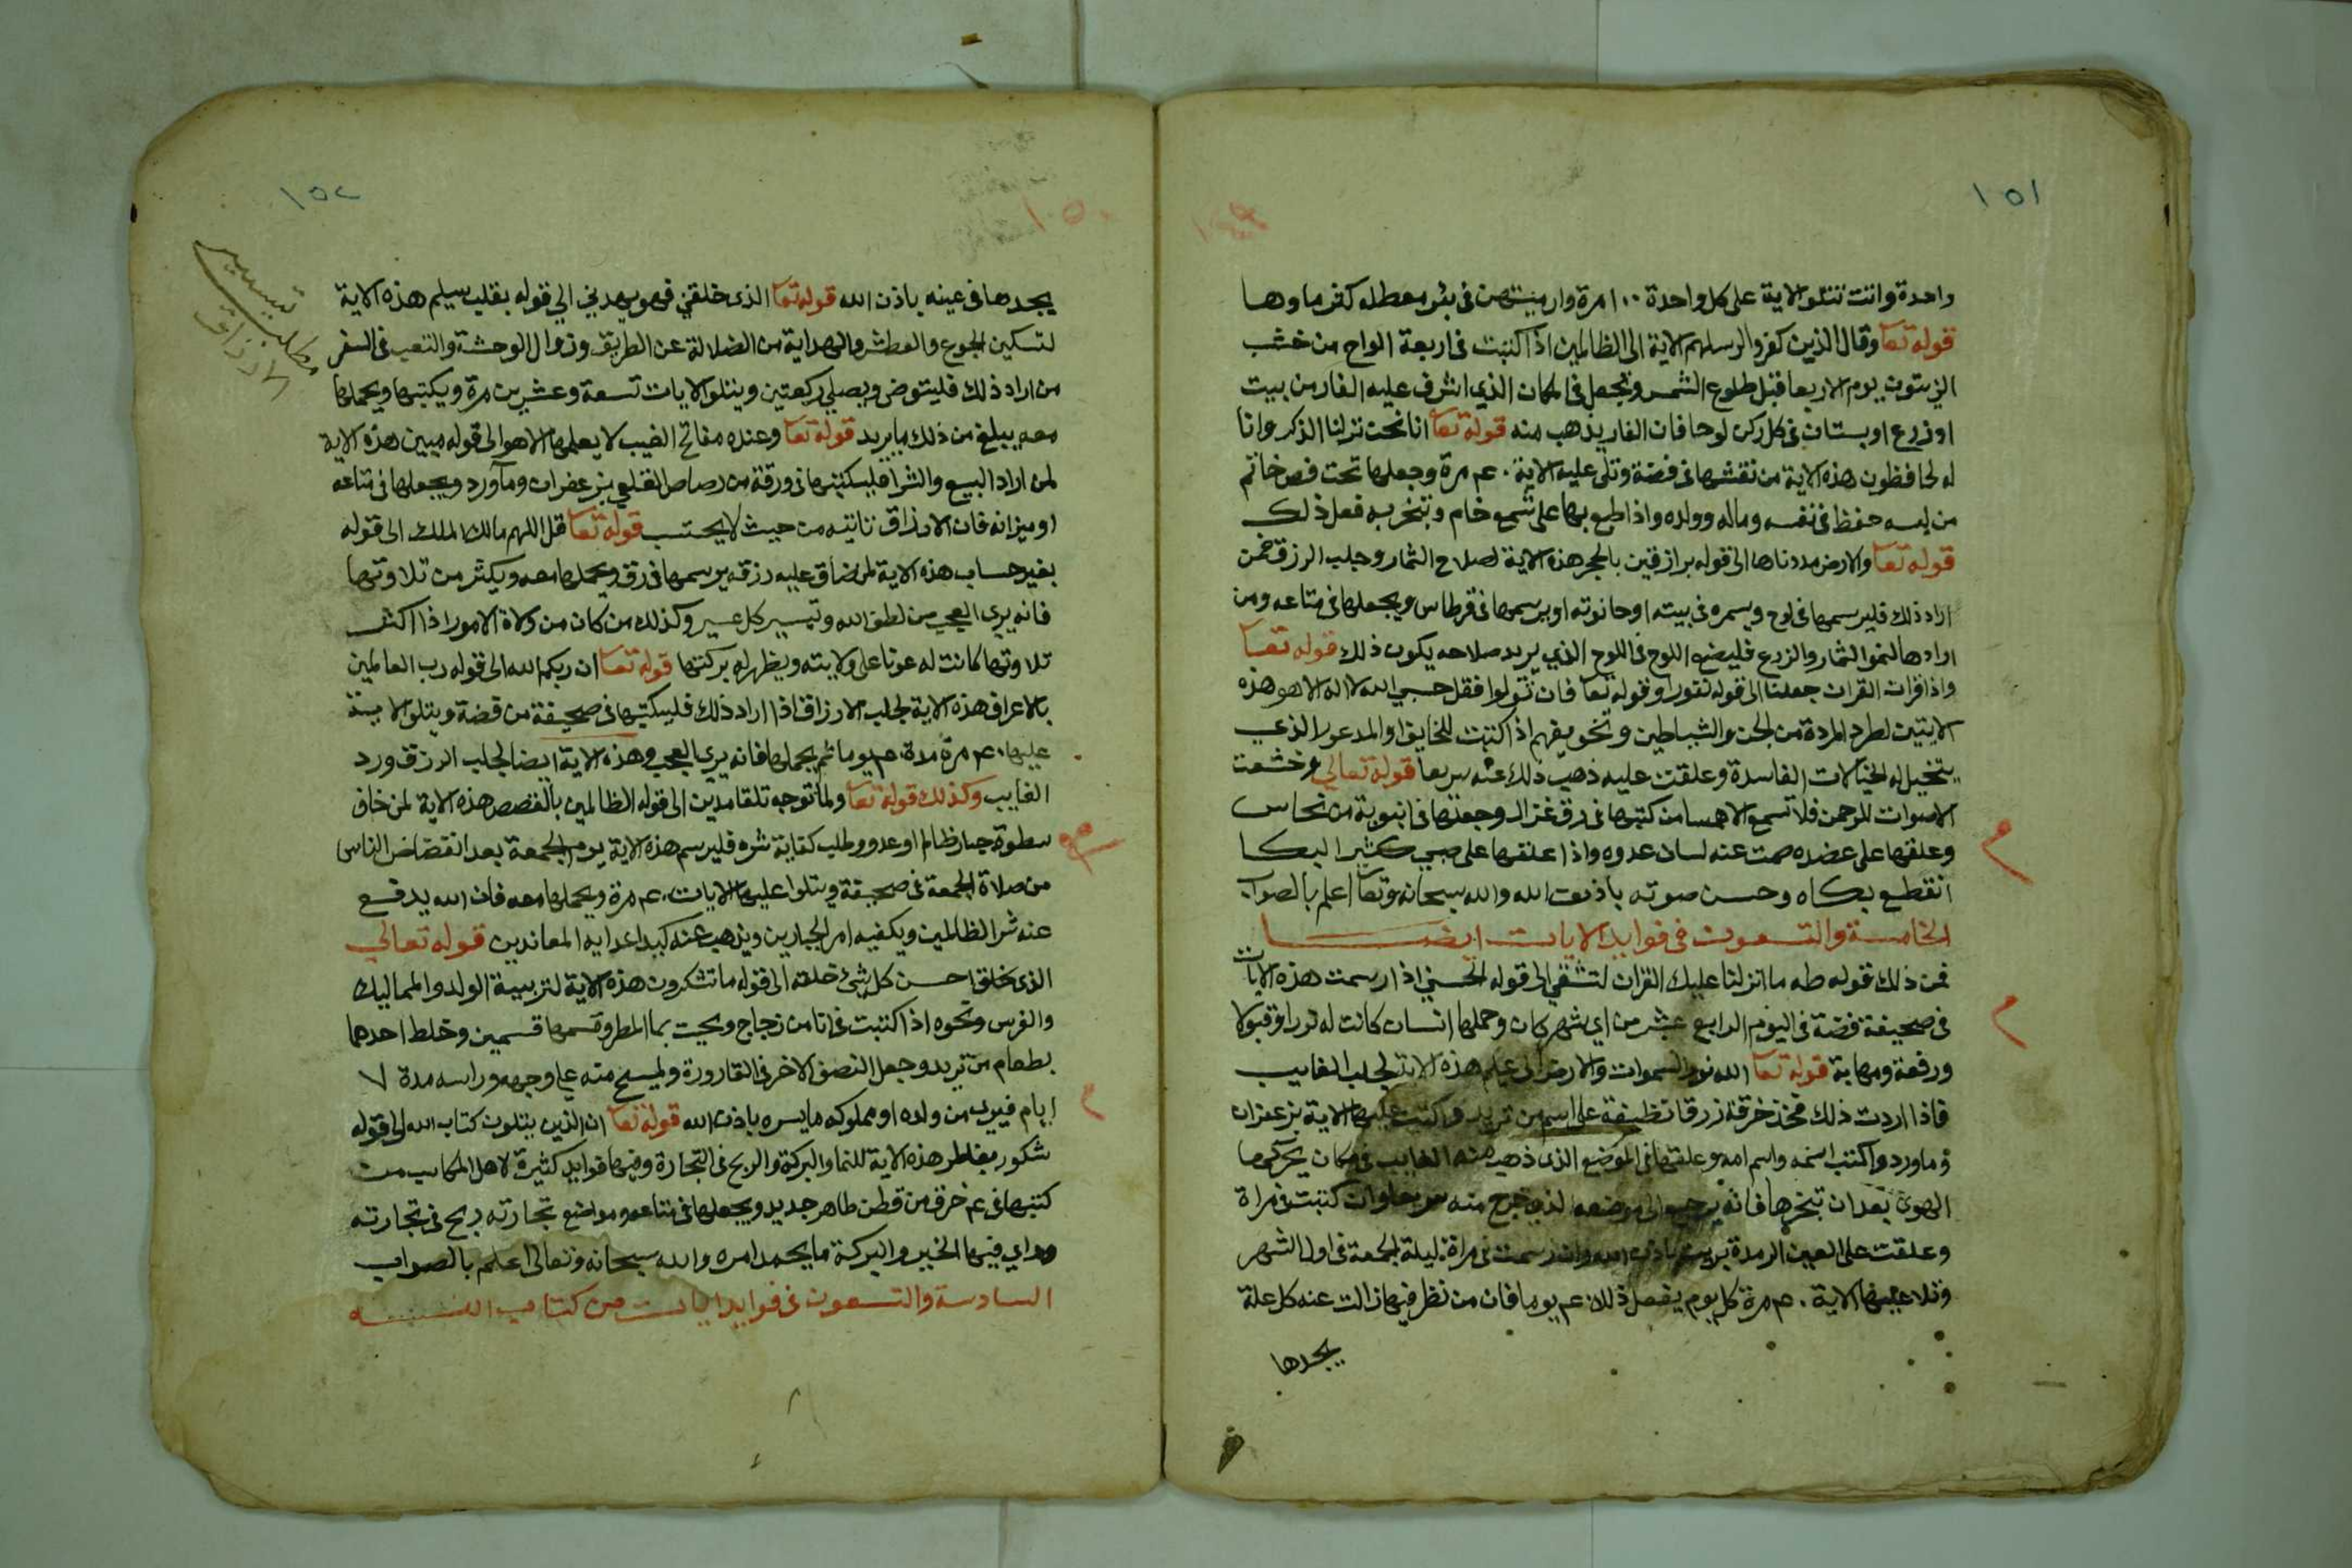 ١٥١
واحدة وانت تتلو الاية على كل واحدة ١٠٠ مرة وارميتهن في بئر معطله كفر ماوها
قوله تعا وقال الذين كفروا لرسلهم الاية الى الظالمين اذا كتبت في اربعة الواح من خشب
الزيتون يوم الاربعا قبل طلوع الشمس وتجعل في المكان الذي اشرف عليه الفار من بيت
او زرع او بستان في كل ركن لوحا فان الفار يذهب منه قوله تعا انا نحن نزلنا الذكر وانا
له لحافظون هذه الاية من نقشها في فضة وتلى عليه الاية ٤٠ مرة وجعلها تحت فص خاتم
من لبسه حفظ في نفسه وماله وولده واذا طبع بها على شمع خام وتبخر به فعل ذلك
قوله تعا والارض مددناها الى قوله برازقين بالحجر هذه الاية لصلاح الثمار وجلب الرزق فمن
اراد ذلك فليرسمها في لوح ويسمره في بيته او حانوته او يرسمها في قرطاس ويجعلها في متاعه ومن
ارادها لنمو الثمار والزرع فليضع اللوح في اللوح الذي يريد صلاحه يكون ذلك قوله تعا
واذا قرات القران جعلنا الى قوله نفورا وقوله تعا فان تولوا فقل حسبي الله لا اله الا هو هذه
الايتين لطرد المردة من الجن والشياطين وتخويفهم اذا كتبت للخايف او المدعور الذي
يتخيل له الخيالات الفاسدة وعلقت عليه ذهب ذلك عنه سريعا قوله تعالي وخشعت
الاصوات للرحمن فلا تسمع الا همسا من كتبها في رق غزال وجعلها في انبوبة من نحاس
وعلقها على عضده صمت عنه لسان عدوه واذا علقها على صبي كثير البكا
انقطع بكاه وحسن صوته باذن الله والله سبحانه وتعا اعلم بالصواب
الخامسة والتسعون في فوايد الايات ايضا
فمن ذلك قوله طه ما انزلنا عليك القران لتشقي الى قوله الحسني اذا رسمت هذه الايات
في صحيفة فضة في اليوم الرابع عشر من اي شهر كان وحملها انسان كانت له نورا وقبولا
ورفعة ومهابة قوله تعا الله نور السموات والارض الى عليم هذه الاية لجلب الغايب
فاذا اردت ذلك فخذ خرقة زرقا نظيفة على اسم من تريد واكتب عليها الاية بزعفران
وماورد واكتب اسمه واسم امه وعلقها في الموضع الذي ذهب منه الغايب في مكان يحركها
الهوي بعد ان تبخرها فانه يرجع الى موضعه الذي خرج منه سريعا وان كتبت في مراة
وعلقت على العين الرمدة بريت باذن الله وان رسمت في مراة ليلة الجمعة في اول الشهر
وتلا عليها الاية ٤٠ مرة كل يوم يفعل ذلك ٤٠ يوما فان من نظر فيها زالت عنه كل علة
يجدها
١٥٢
تيسير
مطلب
الارزاق
يجدها في عينه باذن الله قوله تعا الذي خلقني فهو يهديني الي قوله بقلب سليم هذه الاية
لتسكين الجوع والعطش والهداية من الضلالة عن الطريق وزوال الوحشة والتعب في السفر
من اراد ذلك فليتوض ويصلي ركعتين ويتلو الايات تسعة وعشرين مرة ويكتبها ويحملها
معه يبلغ من ذلك ما يريد قوله تعا وعنده مفاتح الغيب لا يعلمها الا هو الى قوله مبين هذه الاية
لمن اراد البيع والشرا فليكتبها في ورقة من رصاص القلعي بزعفران وماورد ويجعلها في متاعه
او ميزانه فان الارزاق تاتيه من حيث لا يحتسب قوله تعا قل اللهم مالك الملك الى قوله
بغير حساب هذه الاية لمن ضاق عليه رزقه يرسمها في رق ويحملها معه ويكثر من تلاوتها
فانه يري العجب من لطف الله وتيسير كل عسير وكذلك من كان من ولاة الامور اذا اكثر
تلاوتها كانت له عونا على ولايته ويظهر له بركتها قوله تعا ان ربكم الله الى قوله رب العالمين
بالاعراف هذه الاية لجلب الارزاق اذا اراد ذلك فليكتبها في صحيفة من فضة ويتلو الاية
عليها ٤٠ مرة مدة ٤٠ يوما ثم يحملها فانه يري العجب وهذه الاية ايضا لجلب الرزق ورد
الغايب وكذلك قوله تعا ولما توجه تلقا مدين الى قوله الظالمين بالقصص هذه الاية لمن خاف
سطوة جبار ظالم او عدو وطلب كفاية شره فليرسم هذه الاية يوم الجمعة بعد انقضاض الناس
من صلاة الجمعة في صحيفة ويتلوا عليها الايات ٤٠ مرة ويحملها معه فان الله يدفع
عنه شر الظالمين ويكفيه امر الجبارين ويذهب عنه كيد اعدايه المعاندين قوله تعالي
الذي خلق احسن كل شئ خلقه الى قوله ما تشكرون هذه الاية لتربية الولد والمماليك
والفرس ونحوه اذا كتبت في انا من زجاج ومحيت بما المطر وقسمها قسمين وخلط احدهما
بطعام من تريد وجعل النصف الاخر في القارورة ويمسح منه علي وجهه وراسه مدة ٧
ايام فيري من ولده او مملوكه ما يسره باذن الله قوله تعا ان الذين يتلون كتاب الله الى قوله
شكور بفاطر هذه الاية للنما والبركة والربح في التجارة وفيها فوايد كثيرة لاهل المكاسب من
كتبها في ٤ خرق من قطن طاهر جديد ويجعلها في متاعه ومواضع تجارته ربح في تجارته
وراي فيها الخير والبركة ما يحمد امره والله سبحانه وتعالى اعلم بالصواب
السادسة والتسعون في فوايد ايات من كتاب الله